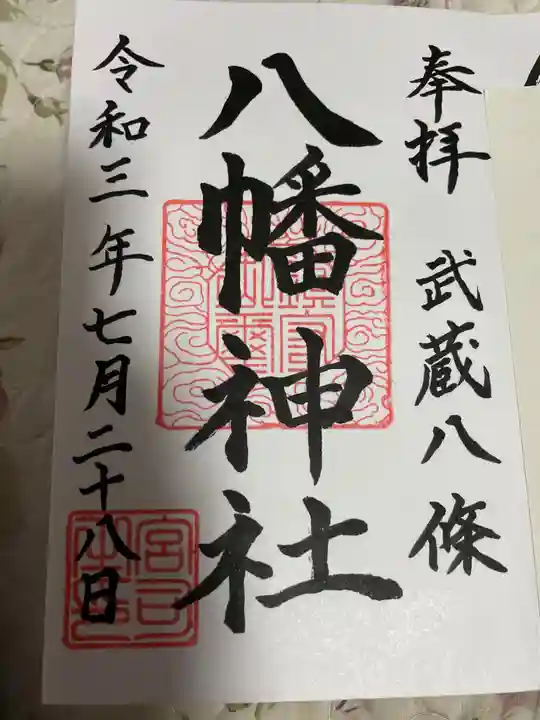 奉拝 武蔵八條
八幡神社
令和三年七月二十八日
宮司